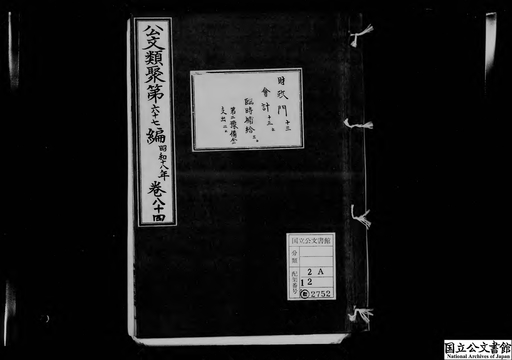 公文類聚第六十七編 昭和十八年 巻八十四
財政門 十三
會計 十三ノ二
臨時補給 二
第二豫備金
支出 二
国立公文書館
分類
配架番号
2 A
12
類2752
国立公文書館
National Archives of Japan